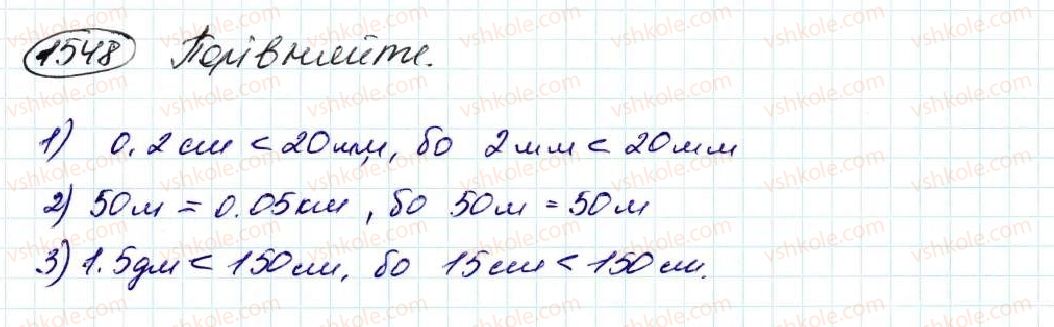 1548 Порівняйте.
1) 0.2см < 20мм, бо 2мм < 20мм
2) 50м = 0.05км, бо 50м = 50м
3) 1.5дм < 150см, бо 15см < 150см.